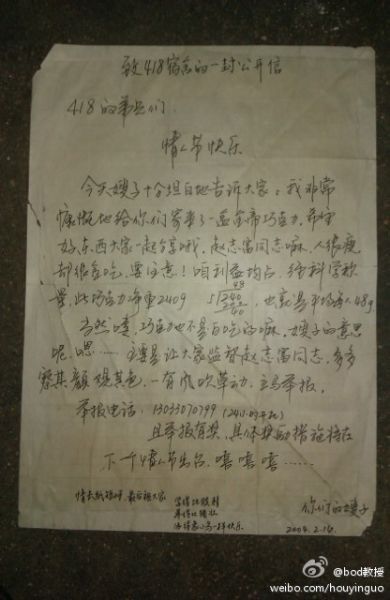 致418宿舍的一封公开信
418的弟兄们:
情人节快乐
今天嫂子十分坦白地告诉大家:我非常
慷慨地给你们寄来了一盒金帝巧克力,希望
好东西大家一起分享哦,赵志富同志嘛,人很瘦
却很贪吃,要注意!咱利益均占,经科学称
量,此巧克力净重240g 5)240 48 240,也就是平均每人48g.
当然喽,巧克力也不是白吃的嘛,嫂子的意思
呢,嗯……主要是让大家监督赵志富同志,多多
察其颜观其色,一有风吹草动,立马举报。
举报电话:13033070799
且举报有奖,具体奖励措施将在
下一个情人节出台,嘻嘻嘻……
情长纸短呀,最后祝大家
你们的嫂子
2004.2.14
@bod教授
weibo.com/houyinguo